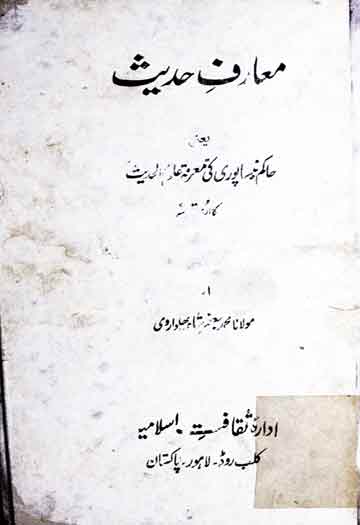 معارفِ حدیث
یعنی
حاکم نیساپوری کی معرفۃ علوم الحدیث
کا اردو ترجمہ
از
مولانا محمد جعفر شاہ پھلواروی
ادارۂ ثقافتِ اسلامیہ
کلب روڈ۔ لاہور۔ پاکستان